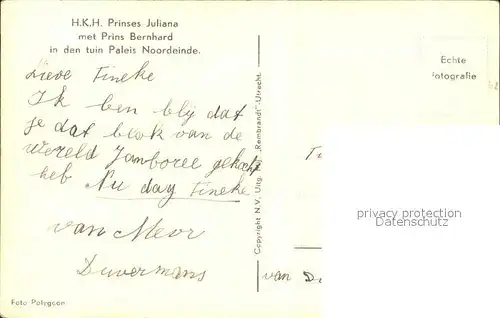 H.K.H. Prinses Juliana
met Prins Bernhard
in den tuin Paleis Noordeinde.
Lieve Tineke
Ik ben blij dat
je dat blok van de
wereld Jamboree gekocht
heb Nu day Tineke
van Mevr
Duvermans
Foto Polygoon
Copyright N.V. Uitg. „Rembrandt"-Utrecht.
Echte
fotografie
van D
privacy protection
Datenschutz